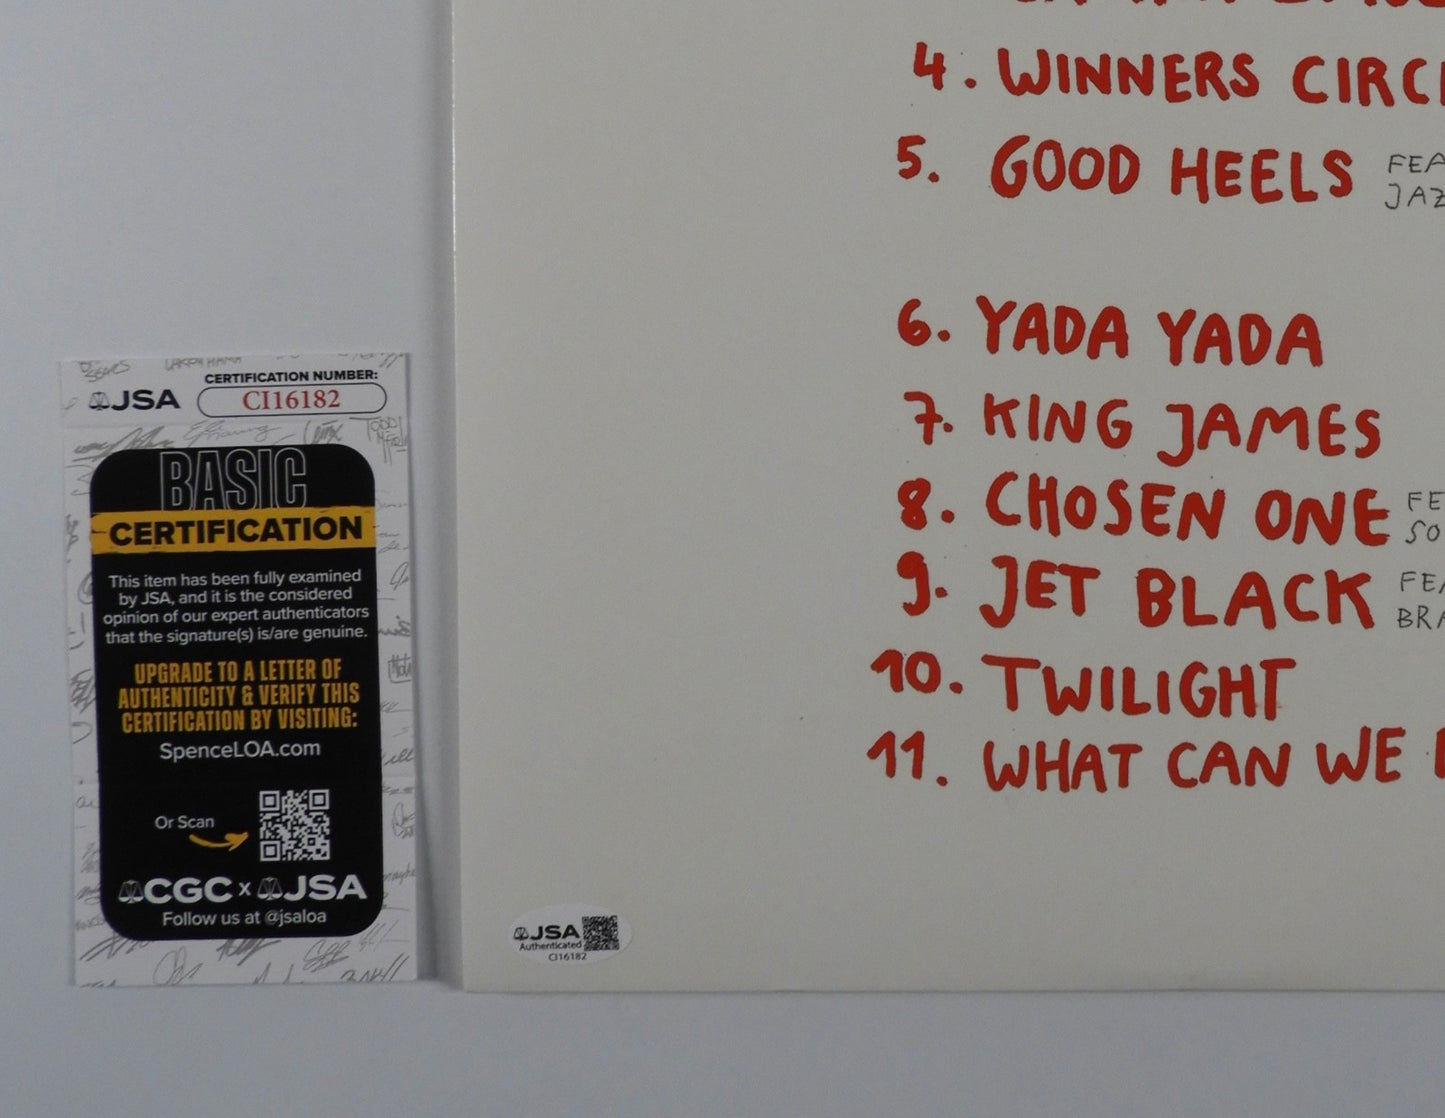 JSA
CERTIFICATION NUMBER:
CI16182
BASIC
CERTIFICATION
This item has been fully examined
by JSA, and it is the considered
opinion of our expert authenticators
that the signature(s) is/are genuine.
UPGRADE TO A LETTER OF
AUTHENTICITY & VERIFY THIS
CERTIFICATION BY VISITING:
SpenceLOA.com
Or Scan
CGC x JSA
Follow us at @jsaloa
4. WINNERS CIRC
5. GOOD HEELS FEA
JAZ
6. YADA YADA
7. KING JAMES
8. CHOSEN ONE FE
SO
9. JET BLACK FEA
BRA
10. TWILIGHT
11. WHAT CAN WE
JSA
Authenticated
CI16182